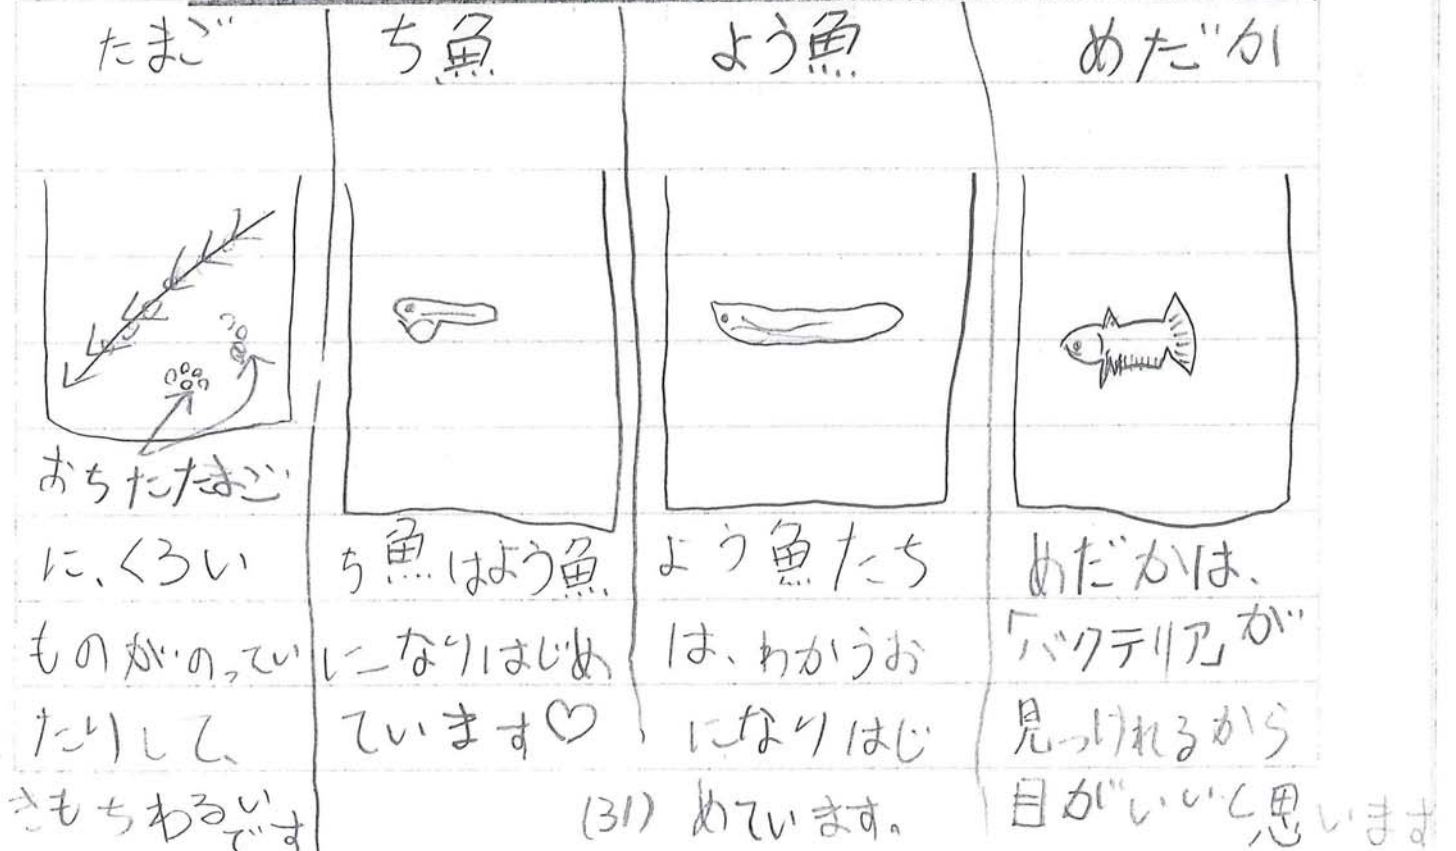 たまご
おちたたまご
に、くろい
ものがのってい
たりして、
きもちわるい
です
ち魚
ち魚はよう魚
になりはじめ
ています♡
よう魚
よう魚たち
は、わかうお
になりはじ
めています。
めだか
めだかは、
「バクテリア」が
見つけれるから
目がいいと思います
(31)